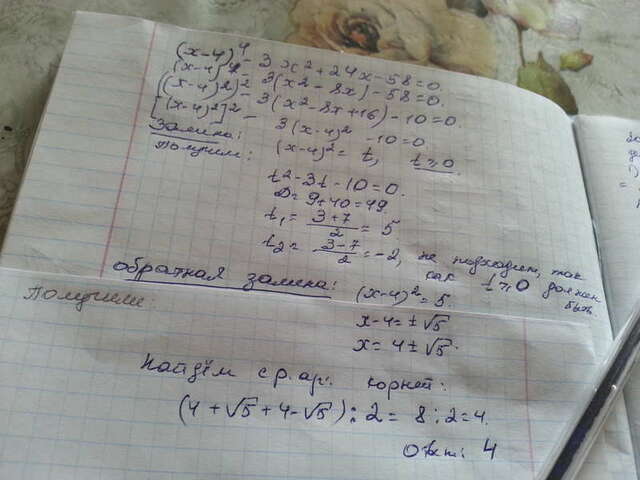 (x-4)⁴ - 3x² + 24x - 58 = 0.
(x-4)⁴ - 3(x² - 8x) - 58 = 0.
((x-4)²)² - 3(x² - 8x + 16) - 10 = 0.
[(x-4)²]² - 3(x-4)² - 10 = 0.
Замена: (x-4)² = t, t ≥ 0
Получим:
t² - 3t - 10 = 0.
D = 9 + 40 = 49.
t₁ = (3+7)/2 = 5
t₂ = (3-7)/2 = -2, не подходит, так
как t ≥ 0 должен
быть
обратная замена:
Получили: (x-4)² = 5.
x - 4 = ± √5
x = 4 ± √5.
Найдём ср. ар. корней:
(4 + √5 + 4 - √5) : 2 = 8 : 2 = 4.
Отв: 4